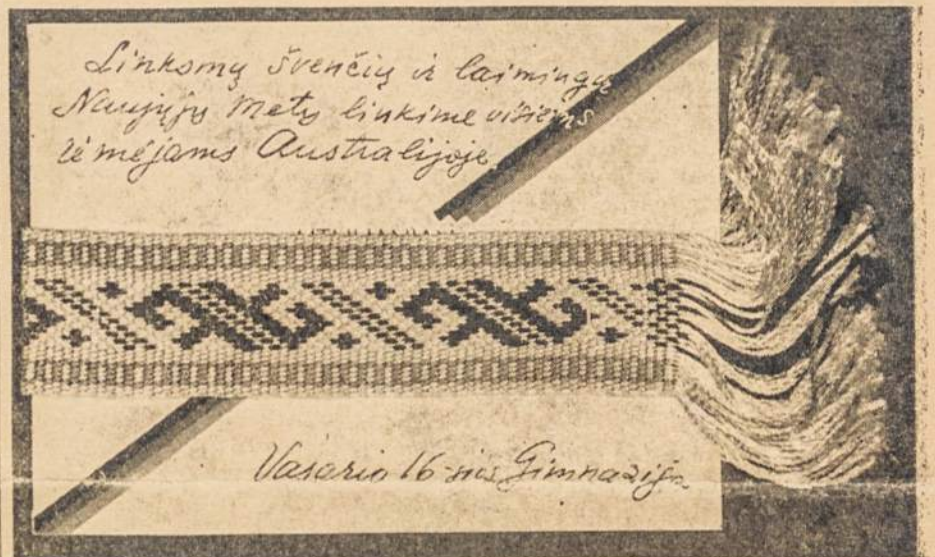 Linksmų švenčių ir laimingų
Naujųjų Metų linkime visiems
rėmėjams Australijoje
Vasario 16-sios Gimnazija